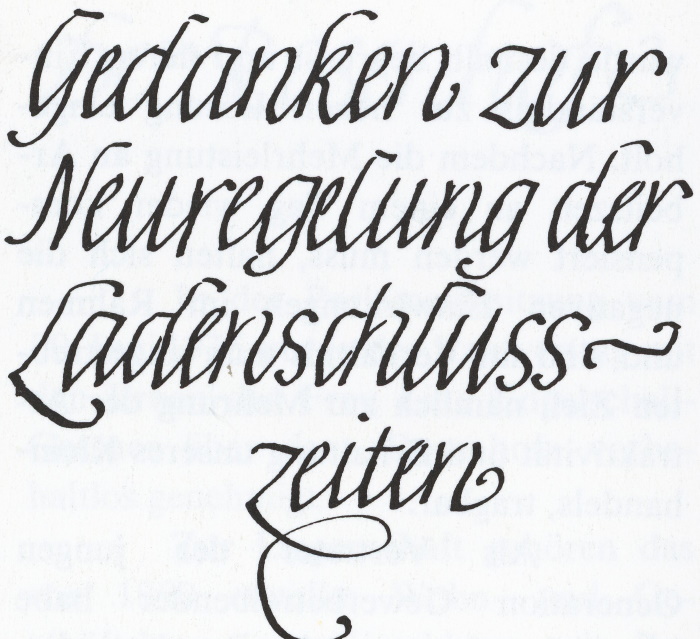 Gedanken zur
Neuregelung der
Ladenschluss~
zeiten